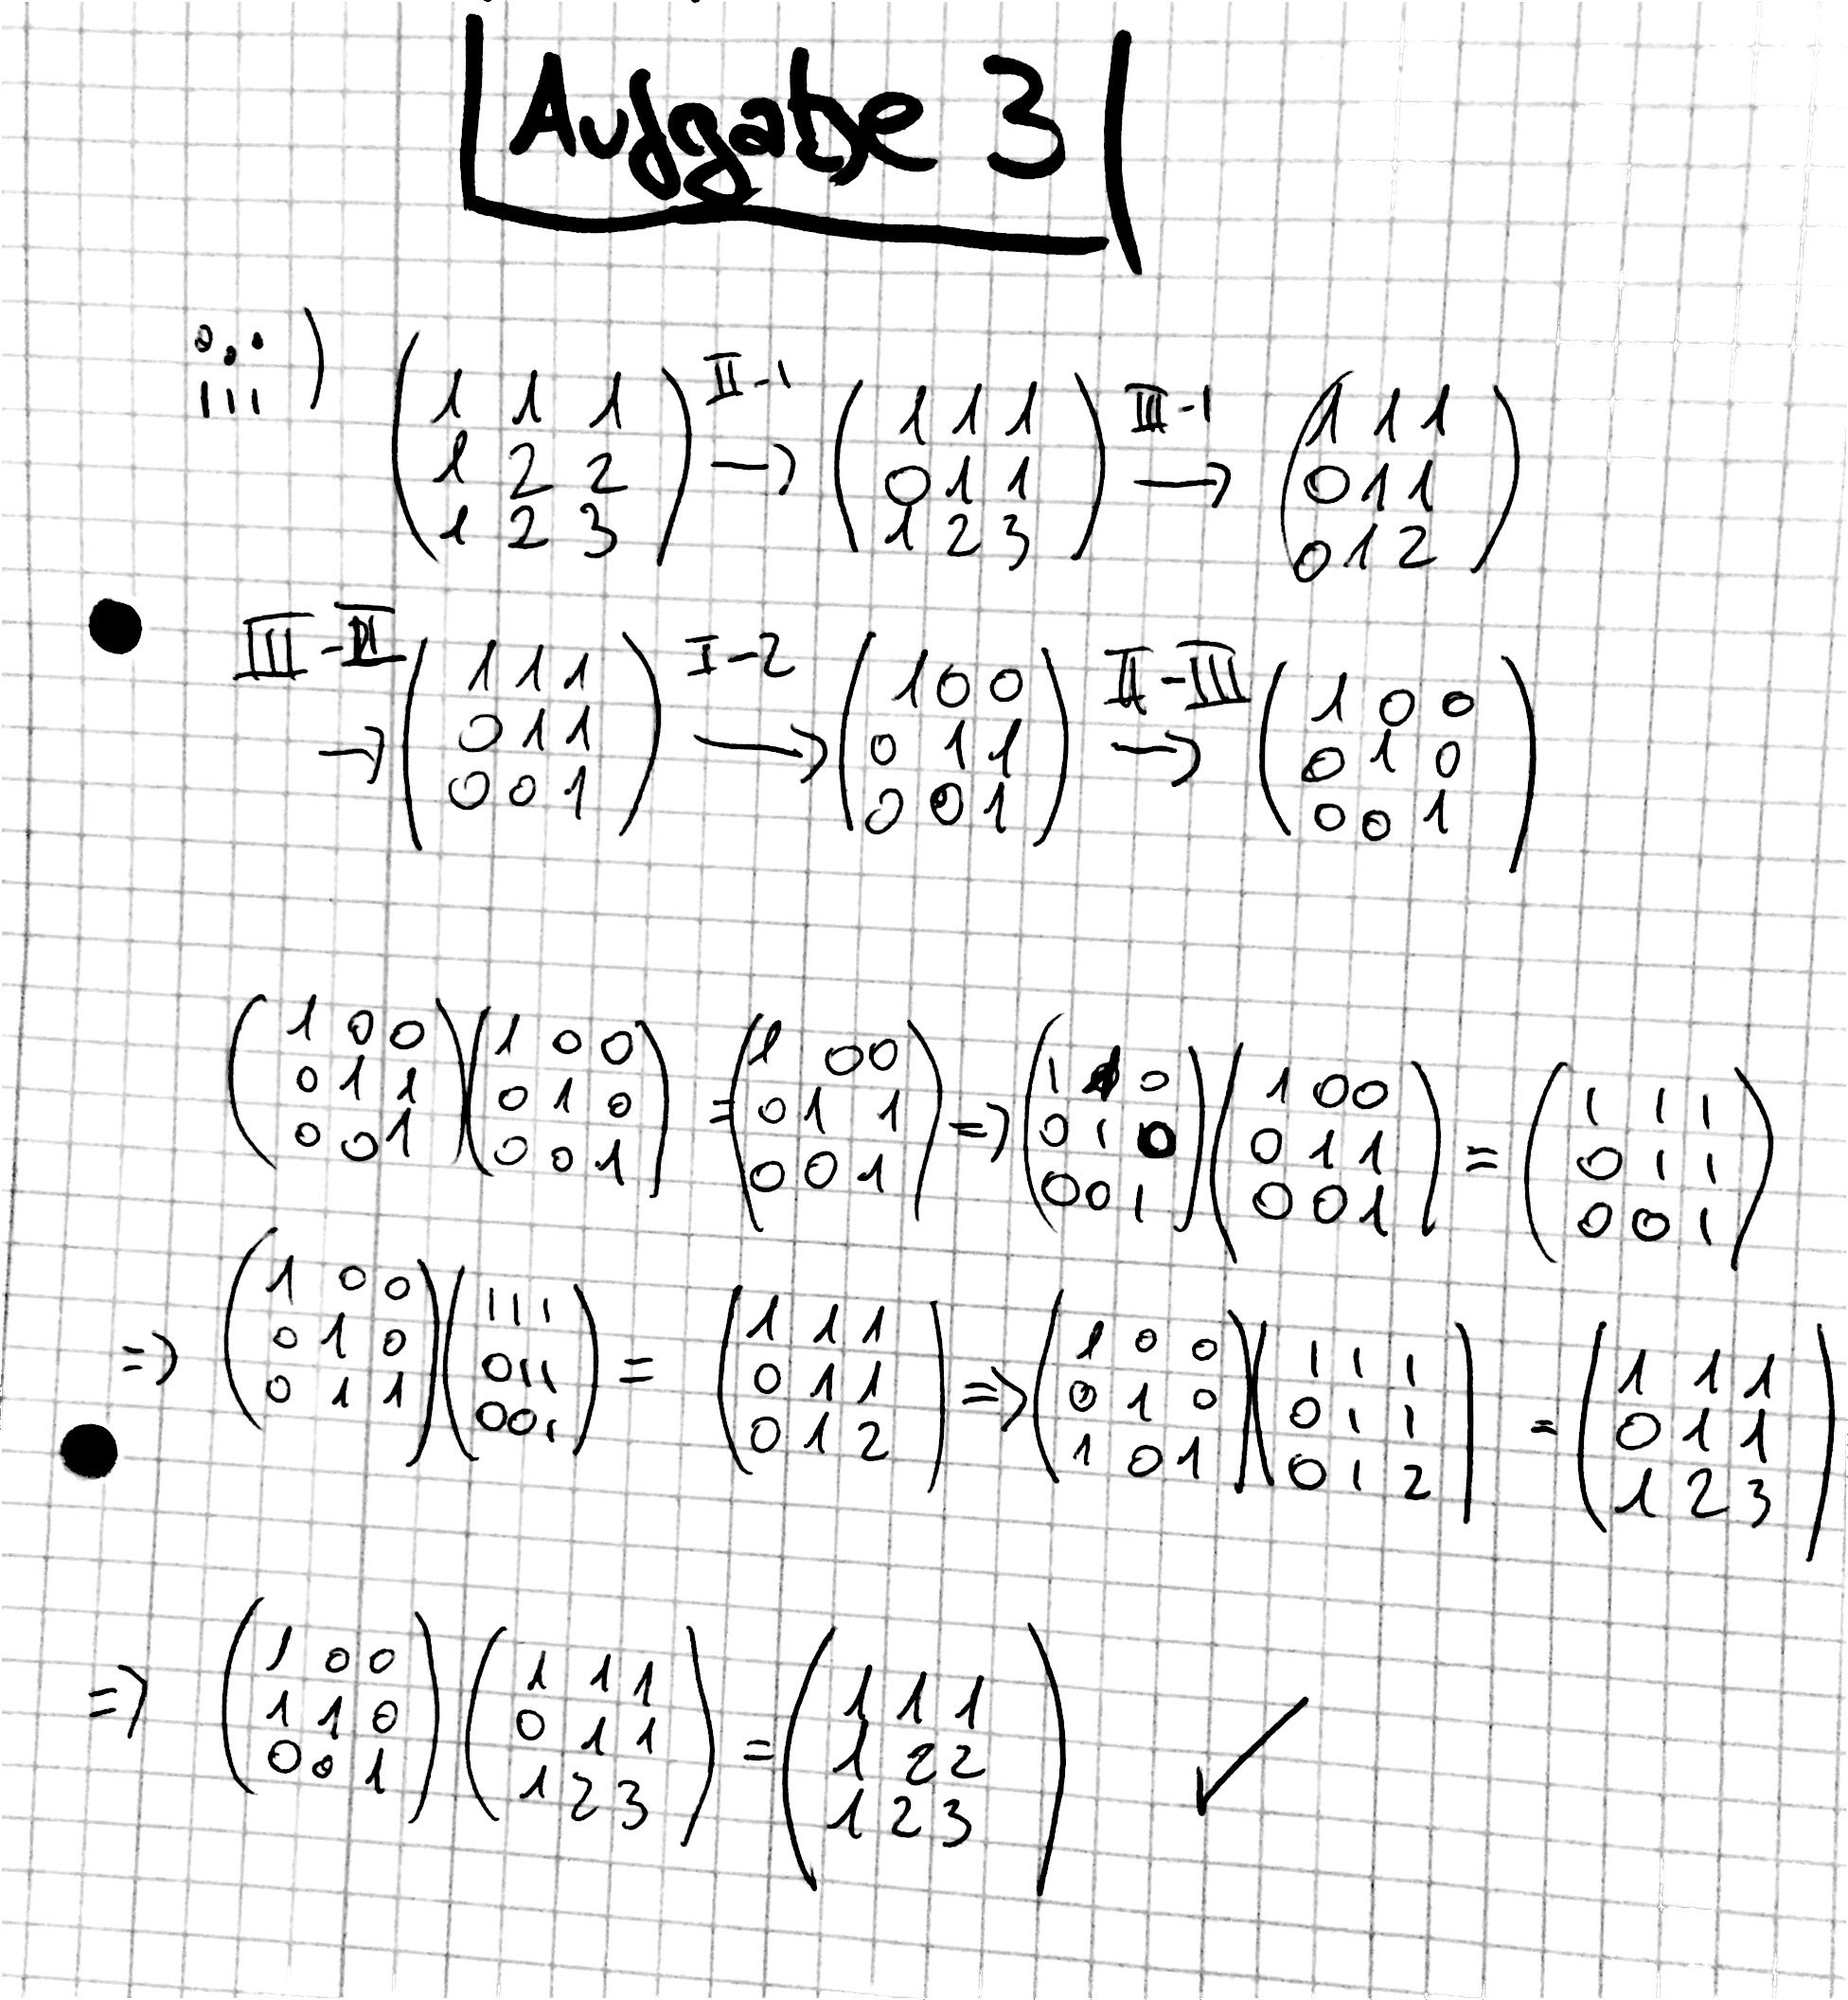 Aufgabe 3
iii) (1 1 1 / 1 2 2 / 1 2 3) II-1 → (1 1 1 / 0 1 1 / 1 2 3) III-1 → (1 1 1 / 0 1 1 / 0 1 2)
III-II → (1 1 1 / 0 1 1 / 0 0 1) I-2 → (1 0 0 / 0 1 1 / 0 0 1) II-III → (1 0 0 / 0 1 0 / 0 0 1)
(1 0 0 / 0 1 1 / 0 0 1) (1 0 0 / 0 1 0 / 0 0 1) = (1 0 0 / 0 1 1 / 0 0 1) => (1 1 0 / 0 1 0 / 0 0 1) (1 0 0 / 0 1 1 / 0 0 1) = (1 1 1 / 0 1 1 / 0 0 1)
=> (1 0 0 / 0 1 0 / 0 1 1) (1 1 1 / 0 1 1 / 0 0 1) = (1 1 1 / 0 1 1 / 0 1 2) => (1 0 0 / 0 1 0 / 1 0 1) (1 1 1 / 0 1 1 / 0 1 2) = (1 1 1 / 0 1 1 / 1 2 3)
=> (1 0 0 / 1 1 0 / 0 0 1) (1 1 1 / 0 1 1 / 1 2 3) = (1 1 1 / 1 2 2 / 1 2 3) ✓